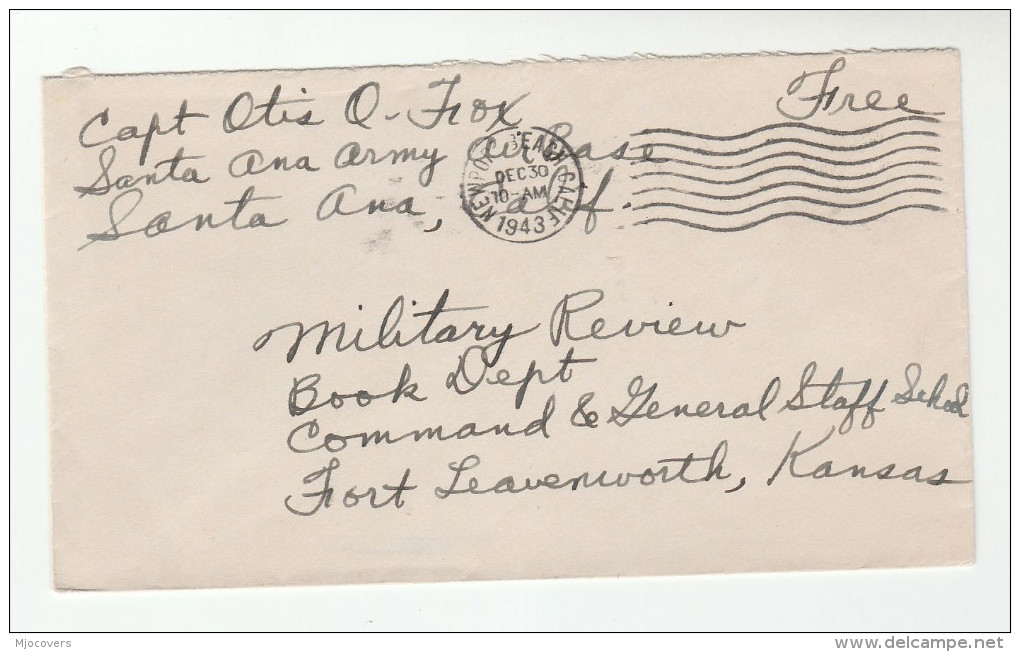 Free
Capt Otis O. Fox
Santa Ana Army Air Base
Santa Ana, Calif.
NEWPORT BEACH CALIF.
DEC 30
10-AM
1943
Military Review
Book Dept
Command & General Staff School
Fort Leavenworth, Kansas
Mjocovers
www.delcampe.net